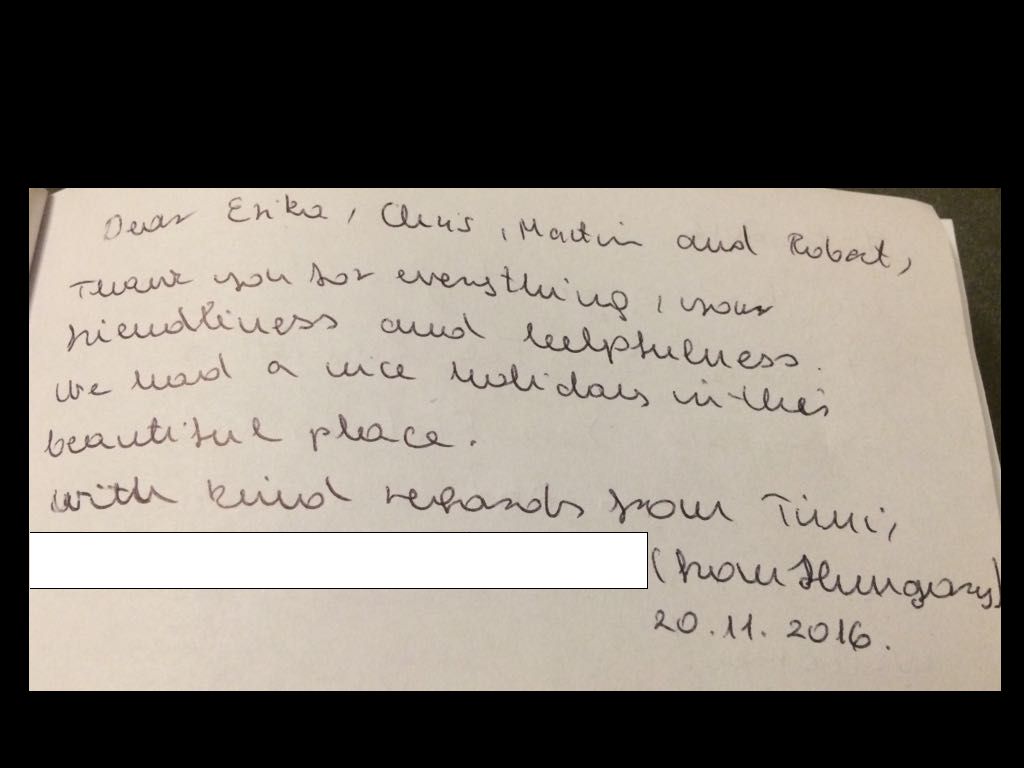 Dear Erika, Chris, Martin and Robert,
Thank you for everything, your
friendliness and helpfulness.
We had a nice holiday in this
beautiful place.
with kind regards from Timi,
(from Hungary)
20.11.2016.